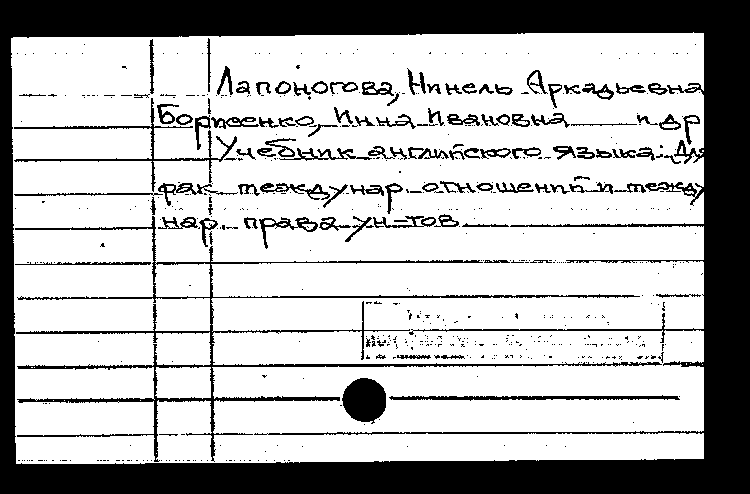 Лапоногова, Нинель Аркадьевна
Борисенко, Инна Ивановна и др
Учебник английского языка: Для
фак. междунар. отношений и между
нар. права ун-тов